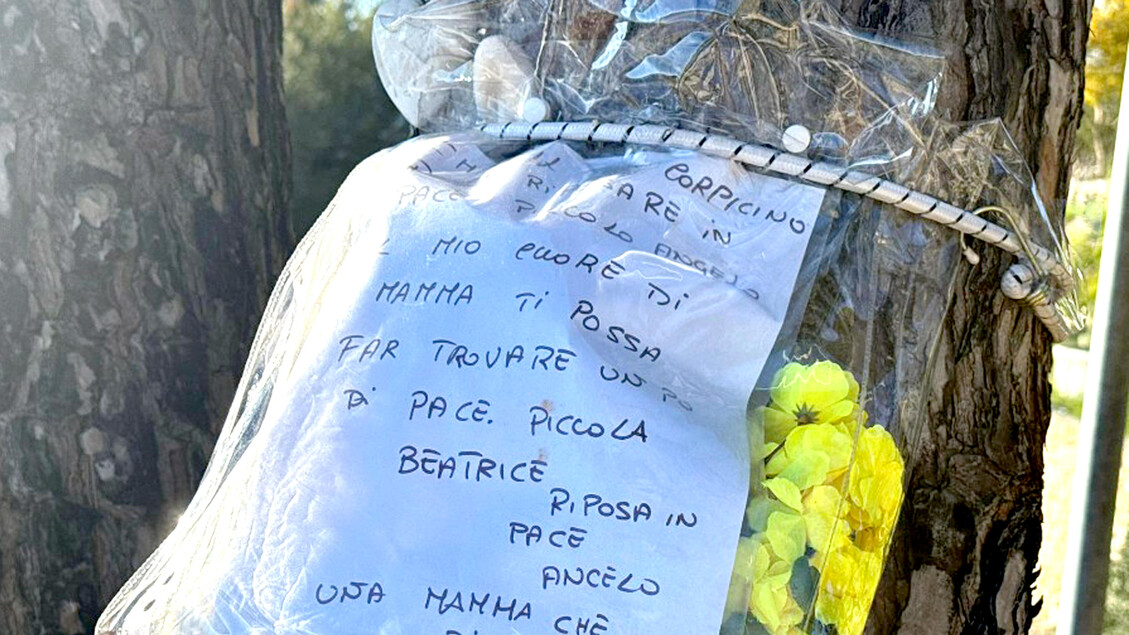 CORPICINO
RI SARE IN
PACE PICCOLO ANGELO
MIO CUORE DI
MAMMA TI POSSA
FAR TROVARE UN PO
DI PACE. PICCOLA
BEATRICE
RIPOSA IN
PACE
ANGELO
UNA MAMMA CHE